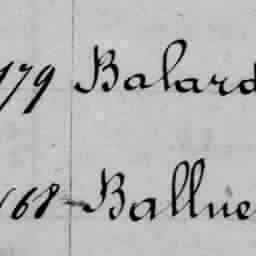 179 Balard
168 Ballne